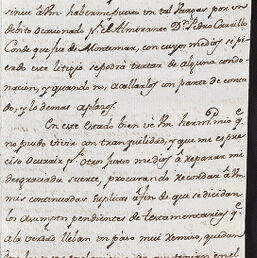 haberme puesto en tal Parage por un
debito ocasionado pr. el Almirante Dn. Pedro Carrillo
Conde que fue de Montemar, con cuyos medios si pi-
erdo este litigio se podrá tratar de alguna condo-
nacion, y quando no, acallarlos con parte de conta-
do, y lo demas a plasos.
En este Estado bien ve Vm. hermo. mio qe.
no puedo vivir con tranquilidad, y que me es pre-
ciso ocurrir pr. otro lado medios á reparar mi
desgraciada suerte, procurando recordar á Vm.
mis continuadas suplicas á fin de que se decidan
los asumptos pendientes de testamentarios qe.
a la verdad lleban un paso mui remiso, quedan
en el